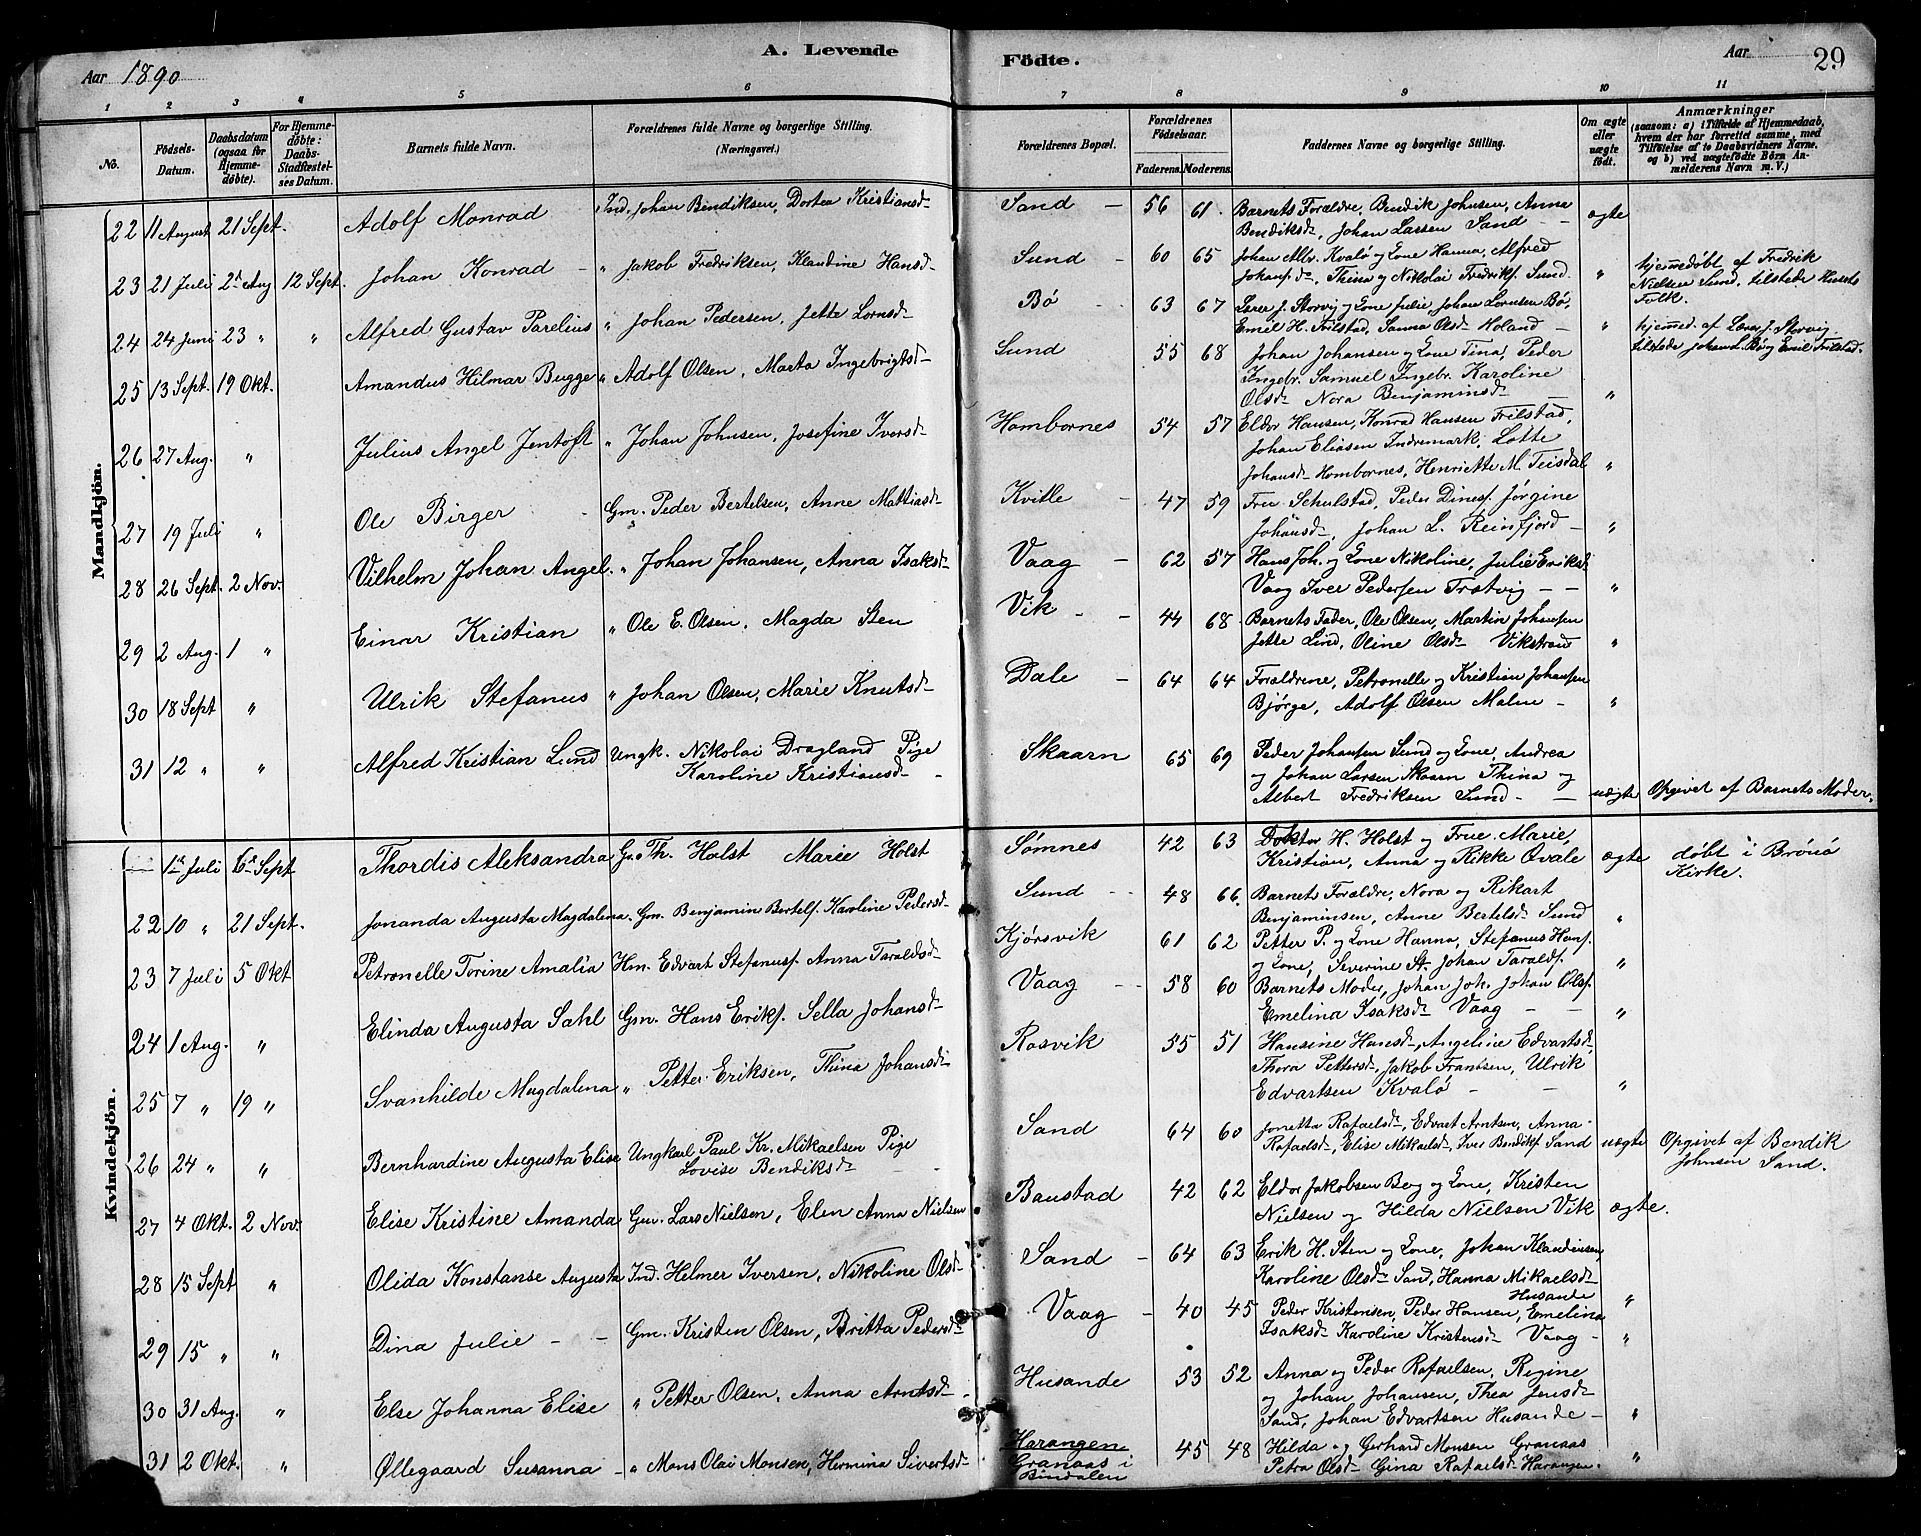 A. Levende Födte.
Aar 1890
Aar 29
1 2 3 4 5 6 7 8 9 10 11
No.
Födsels-Datum.
Daabsdatum (ogsaa for Hjemmedöbte).
For Hjemmedöbte: Daabs-Stadfæstelses Datum.
Barnets fulde Navn.
Forældrenes fulde Navne og borgerlige Stilling. (Næringsvei.)
Forældrenes Bopæl.
Forældrenes Födselsaar.
Faderens. Moderens.
Faddernes Navne og borgerlige Stilling.
Om ægte eller uægte födt.
Anmærkninger (saasom: a) i Tilfælde af Hjemmedaab, hvem der har forrettet samme, med Tilföielse af to Daabsvidners Navne, og b) ved uægtefödte Börn Anmelderens Navn m. V.)
Mandkjön.
22 11 August 21 Sept. Adolf Monrad Ind. Johan Bendiksen, Dortea Kristiansd- Sand - 56 61. Barnets Forældre, Bendik Johnsen, Anna
Bendiksd, Johan Larsen Sand - - ægte
23 21 Juli 2n Aug 12 Sept. Johan Konrad - " Jakob Fredriksen, Klaudine Hansd- Sund - 60 65 Johan Alb. Kvalø og Kone Hanna, Alfred
Johansd-, Thina og Nikolai Fredriks. Sund. " hjemmedøbt af Fredrik
Nielsen Sund, tilstede Husets
Folk.
24 24 Juni 23 " " Alfred Gustav Parelius " Johan Pedersen, Jette Lornsd- Bø - 63 67 Lærer J. Storvig og Kone Julie, Johan Lornsen Bø,
Emil H. Trilstad, Sanna Olsd- Holand - " hjemmed. af Lærer J. Storvig.
tilstede Johan L. Bø og Emil Trilstad.
25 13 Sept. 19 Okt. Amandus Hilmar Bugge " Adolf Olsen, Marta Ingebrigtsd- Sund 55 68 Johan Johansen og Kone Tina, Peder
Ingebr. Samuel Ingebr. Karoline
Olsd- Nora Benjaminsd - - "
26 27 Aug. " Julius Angel Jentoft " Johan Johnsen, Josefine Iversd- Hombornes 54 57 Eldor Hansen, Konrad Hansen Trilstad,
Johan Eliasen Indremark, Lotte
Johansd- Hombornes, Henriette M. Teisdal "
27 19 Juli " Ole Birger - Gm. Peder Bertelsen, Anne Mattiasd- Kvitle - 47 59 Fru Schulstad, Peder Dines. Jørgine
Johansd-, Johan L. Reinfjord - "
28 26 Sept. 2 Nov. Vilhelm Johan Angel. " Johan Johansen, Anna Isaksd- Vaag - 62 57 Hans Joh. og Kone Nikoline, Julie Eriksd
Vaag Iver Pedersen Trætvig - - "
29 2 Aug. 1 " Einar Kristian " Ole E. Olsen, Magda Sten Vik - - 44 68 Barnets Fader, Ole Olsen, Martin Johansen
Jette Lind, Oline Olsd- Vikstrand "
30 18 Sept " Ulrik Stefanus " Johan Olsen, Marie Knutsd- Dale - 64 64 Forældrene, Petronelle og Kristian Johansen
Bjørge, Adolf Olsen Malm - "
31 12 " " Alfred Kristian Lund Ungk. Nikolai Dragland Pige
Karoline Kristiansd- - Skaarn 65 69 Peder Johansen Sund og Kone, Andrea
og Johan Larsen Skaarn Thina og
Albert Fredriksen Sund - - uægte Opgivet af Barnets Moder.
Kvindekjön.
- 1n Juli 6n Sept Thordis Aleksandra G. Th. Holst Marie Holst Sømnes 42 63 Doktor H. Holst og Frue Marie,
Kristian, Anna og Rikke Qvale ægte døbt i Brønø
Kirke.
22 10 " 21 Sept. Jonanda Augusta Magdalena Gm. Benjamin Bertels. Karoline Pedersd- Sund - - 48 66. Barnets Forældre, Nora og Rikart
Benjaminsen, Anne Bertelsd- Sund "
23 7 Juli 5 Okt Petronelle Torine Amalia Hm. Edvart Stefanus. Anna Taraldsd- Kjørsvik 61 62 Petter P. og Kone Hanna, Stefanus Hans.
og Kone, Severine St. Johan Taralds. "
24 1 Aug. " Elinda Augusta Sahl Gm. Hans Eriks. Sella Johansd- Vaag - - 58 60 Barnets Moder, Johan Joh. Johan Ols.
Emelina Isaksd- Vaag - - "
25 7 " 19 " Svanhilde Magdalena " Petter Eriksen, Thina Johansd- Rosvik 55 51 Hansine Hansd-, Angeline Edvartsd,
Thora Pettersd-, Jakob Frantsen, Ulrik
Edvartsen Kvalø - - "
26 24 " " Bernhardine Augusta Elise Ungkarl Paul Kr. Mikaelsen Pige
Lovise Bendiksd- - Sand 64 60 Jonetta Rafaelsd-, Edvart Arntsen, Anna
Rafaelsd-, Elise Mikaelsd-, Iver Bendiks. Sand uægte Opgivet af Bendik
Johnsen Sand.
27 4 Okt. 2 Nov. Elise Kristine Amanda Gm. Lars Nielsen, Elen Anna Nielsen Baustad 42 62 Eldor Jakobsen Berg og Kone, Kristen
Nielsen og Hilda Nielsen Vik ægte.
28 15 Sept " Olida Konstanse Augusta Ind. Helmer Iversen, Nikoline Olsd- Sand - 64 63 Erik H. Sten og Kone, Johan Klaudiusen,
Karoline Olsd- Sand, Hanna Mikaelsd-
Husande "
29 15 " " Dina Julie - - Gm. Kristen Olsen, Britta Pedersd- Vaag - 40 45 Peder Kristensen, Peder Hansen, Emelina
Isaksd- Karoline Kristensd- Vaag - "
30 31 Aug. " Else Johanna Elise " Petter Olsen, Anna Arntsd- - Husande 53 52 Anna og Peder Rafaelsen, Regine
og Johan Johansen, Thea Jensd-
Sand, Johan Edvartsen Husande - "
31 2 Okt. " Øllegaard Susanna - " Mons Olai Monsen, Hermina Sivertsd- Harangen
Granaas i
Bindalen 45 48 Hilda og Gerhard Monsen Granaas
Petra Olsd- Gina Rafaelsd- Harangen. "